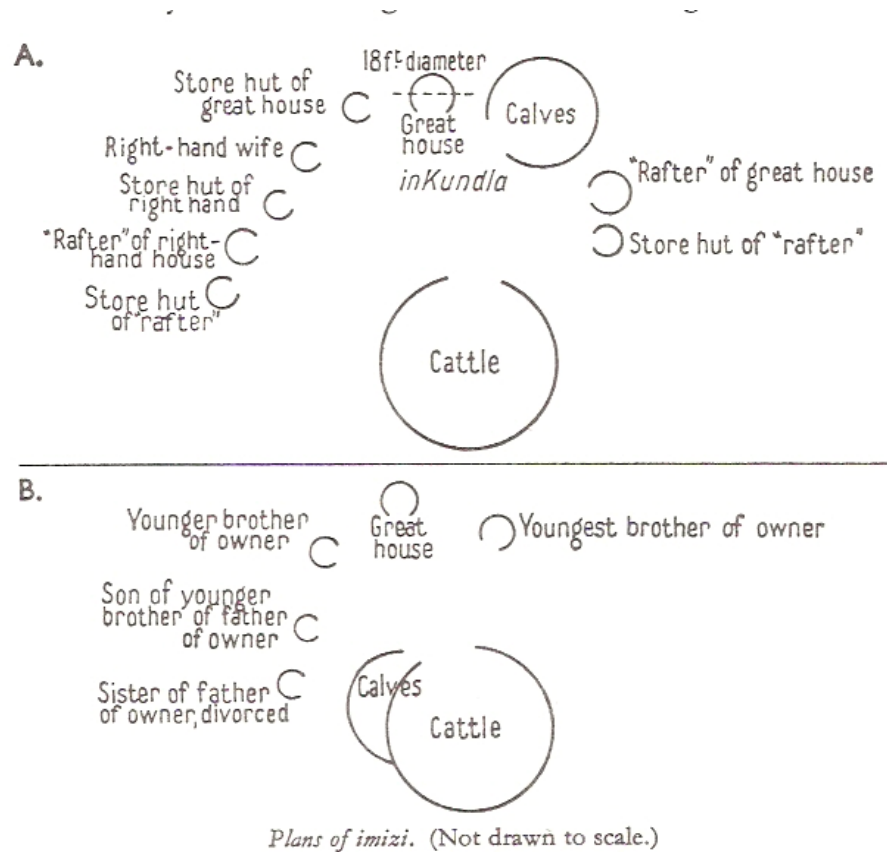 A.
18ft diameter
Store hut of
great house
Great
house
Calves
Right-hand wife
inKundla
"Rafter" of great house
Store hut of
right hand
"Rafter" of right-
hand house
Store hut of "rafter"
Store hut
of "rafter"
Cattle
B.
Younger brother
of owner
Great
house
Youngest brother of owner
Son of younger
brother of father
of owner
Sister of father
of owner, divorced
Calves
Cattle
Plans of imizi. (Not drawn to scale.)